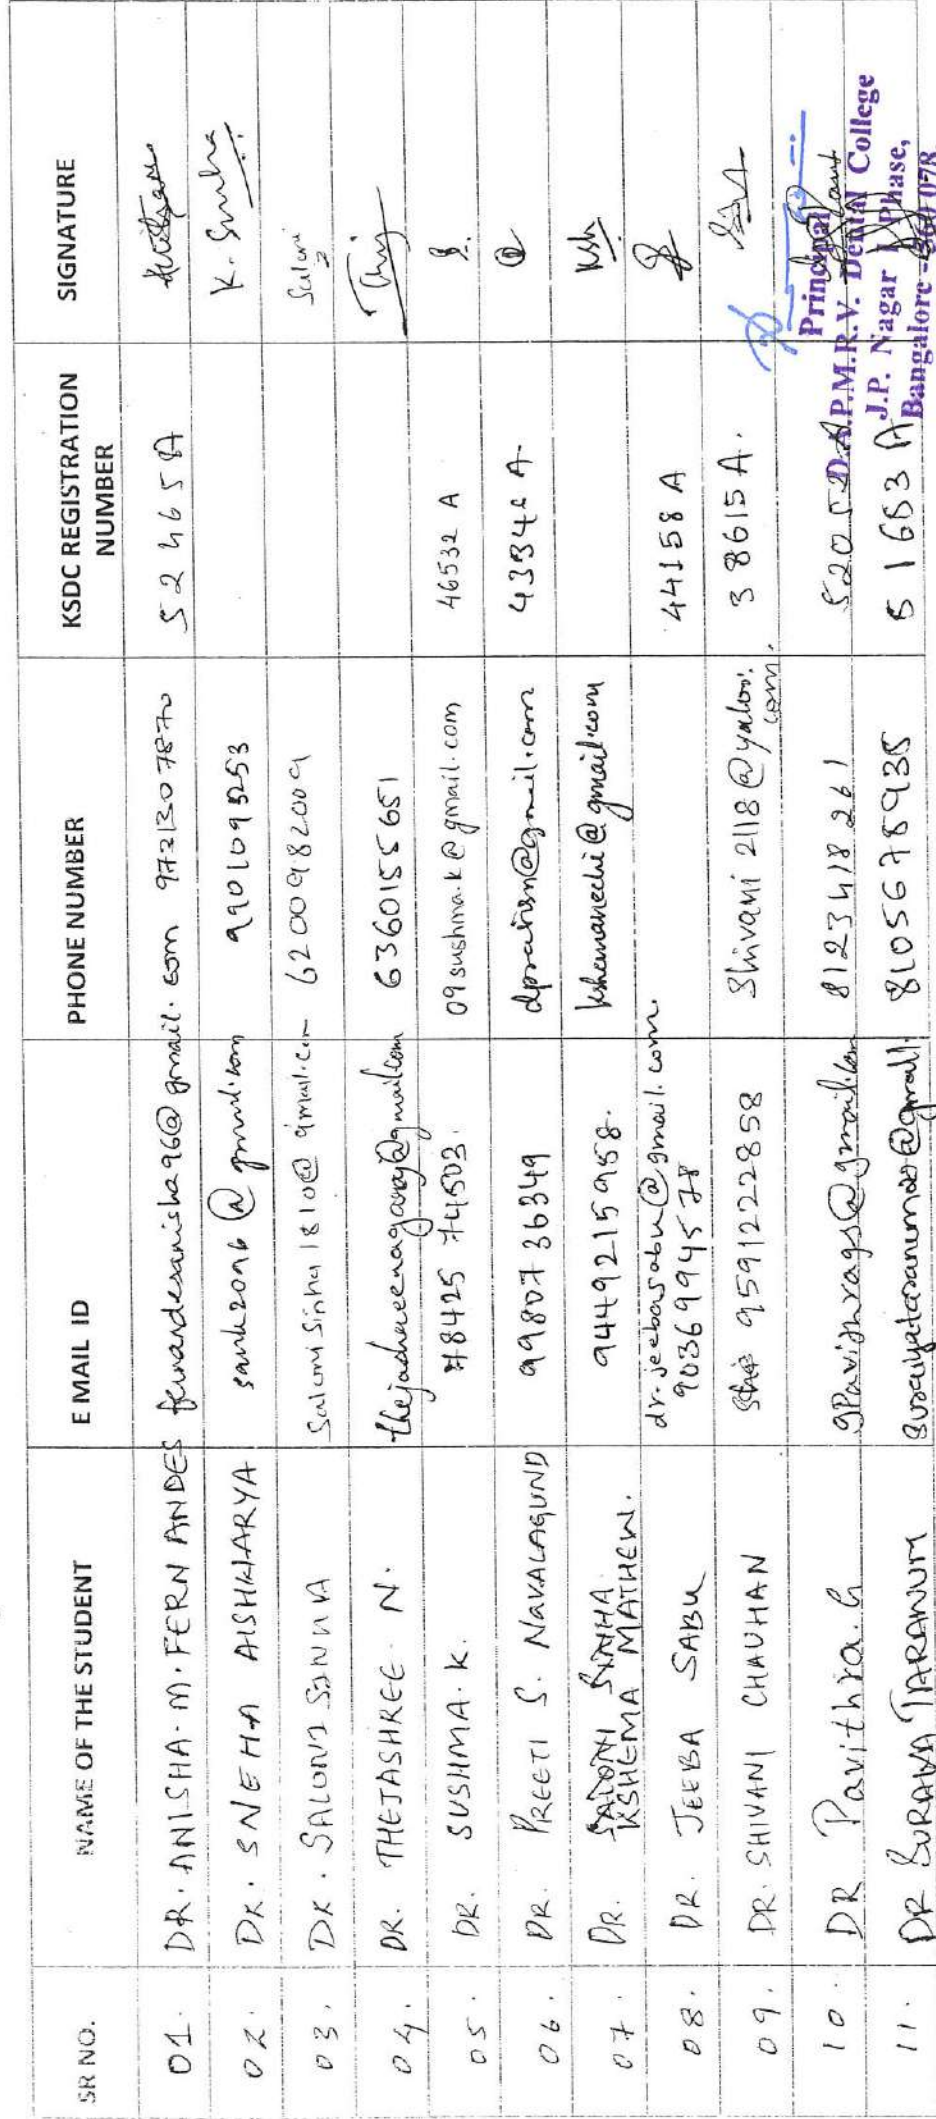 SR NO. NAME OF THE STUDENT E MAIL ID PHONE NUMBER KSDC REGISTRATION NUMBER SIGNATURE
01. DR. ANISHA. M. FERNANDES fernandesanisha96@gmail.com 9721307870 52465A
02. DR. SNEHA AISHWARYA 9901095253 K. Sneha
03. DR. SALONI SINHA Salonisinha1810@gmail.com 6200982009 Saloni
04. DR. THEJASHREE. N. 6360155651 Thej
05. DR. SUSHMA. K. 78425 74503. 09sushma.k@gmail.com 46532 A
06. DR. PREETI S. NAVALAGUND 9980736349
07. DR. SALONI SINHA
KSHEMA MATHEW. 9449215958. Ksh
08. DR. JEEBA SABU dr.jeebasabu@gmail.com.
9036994578 44158 A
09. DR. SHIVANI CHAUHAN 9591222858 Shivani2118@yahoo.
com. 38615A.
10. DR Pavithra. G gpavithrags@gmail.com 8123418261
11. DR SURAIYA TARANUM 8105678935 51653 A
Principal
D.A.P.M.R.V. Dental College
J.P. Nagar I Phase,
Bangalore - 560 078